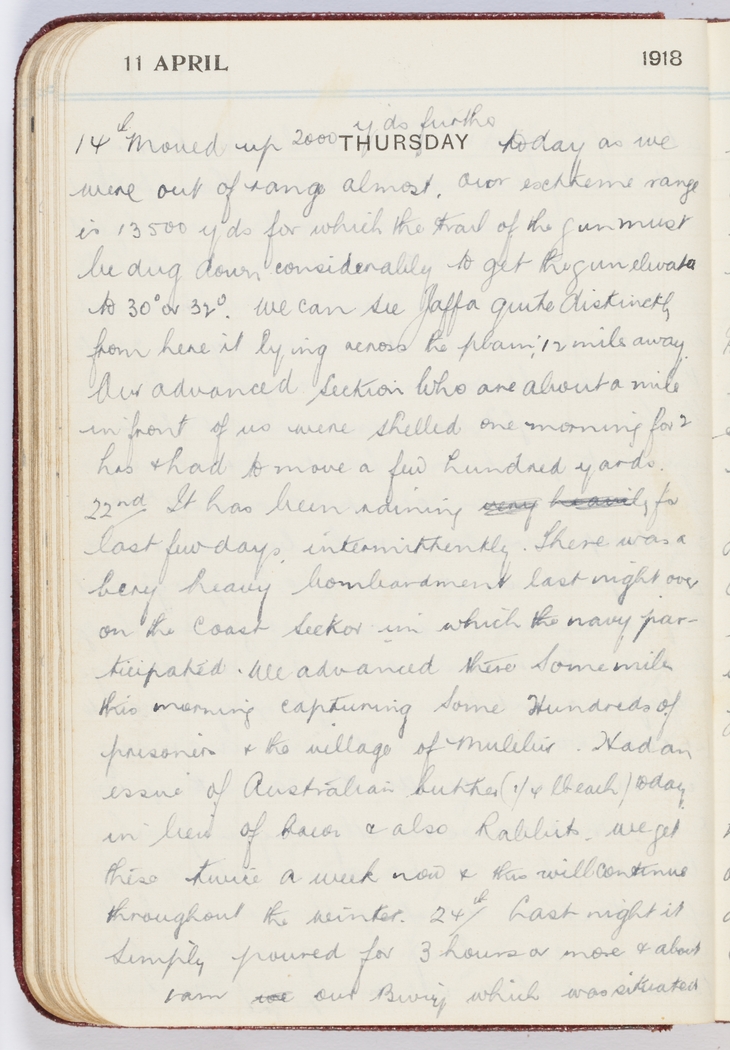 11 APRIL 1918
yds further
14th Moved up 2000 THURSDAY today as we
were out of range almost. Our exctreme range
is 13500 yds for which the trail of the gun must
be dug down considerably to get the gun elevated
to 30° or 32°. We can see Jaffa quite distinctly
from here it lying across the plain, 12 mile away.
Our advanced section who are about a mile
in front of us were shelled one morning for 2
hrs & had to move a few hundred yards.
22nd/ It has been raining very heavily for
last few days, intermittently. There was a
very heavy bombardment last night over
on the Coast Sector in which the navy par-
ticipated. We advanced there some miles
this morning capturing some Hundreds of
prisoners & the village of Mulebis. Had an
issue of Australian butter (1/4 lb each) today
in lieu of bacon & also Rabbits. We get
these twice a week now & this will continue
throughout the winter. 24th/ Last night it
simply poured for 3 hours or more & about
1 am we our Bivvy which was situated